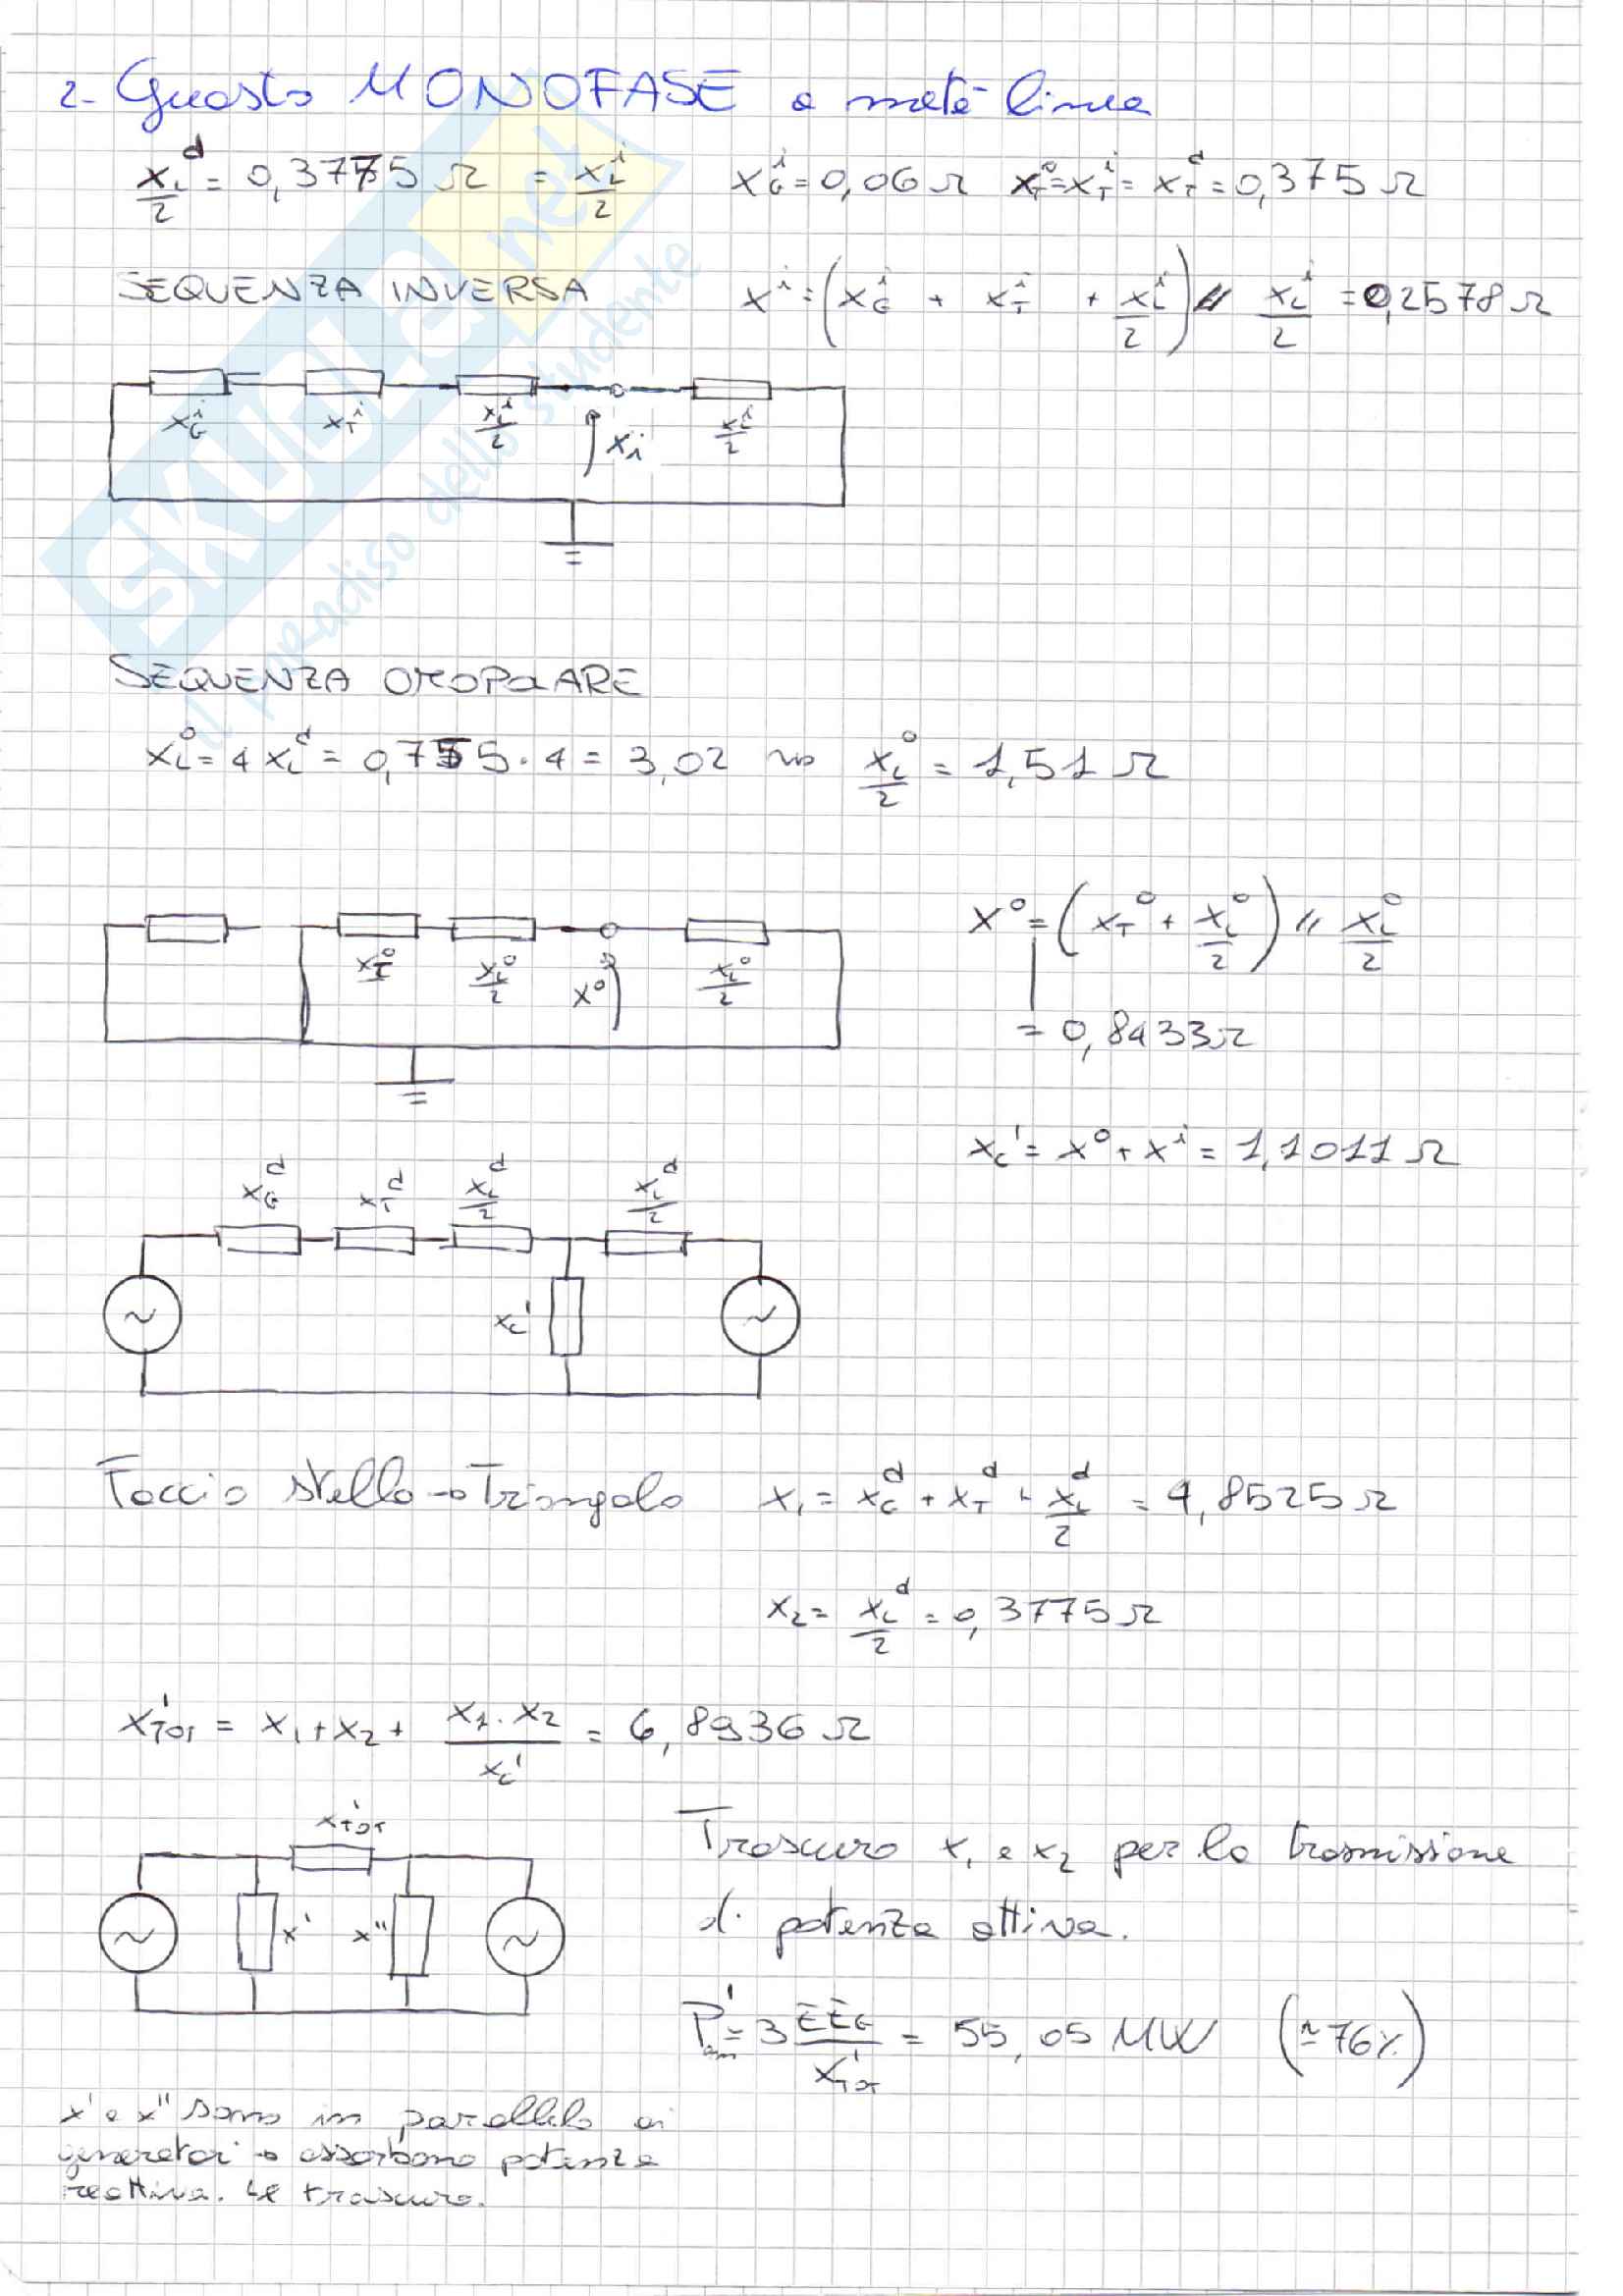 2- Guasto MONOFASE a metà linea
x_L^d/2 = 0,3775 Ω = x_L^i/2   x_G^i = 0,06 Ω   x_T^o = x_T^i = x_T^d = 0,375 Ω
SEQUENZA INVERSA   x^i = (x_G^i + x_T^i + x_L^i/2) // x_L^i/2 = 0,2578 Ω
x_G^i   x_T^i   x_L^i/2   x_i   x_L^i/2
SEQUENZA OMOPOLARE
x_L^o = 4 x_L^d = 0,755 · 4 = 3,02 ⇝ x_L^o/2 = 1,51 Ω
x^o = (x_T^o + x_L^o/2) // x_L^o/2
x_T^o   x_L^o/2   x^o   x_L^o/2
= 0,8433 Ω
x_c' = x^o + x^i = 1,1011 Ω
x_G^d   x_T^d   x_L^d/2   x_L^d/2
x_c'
Faccio stella → Triangolo   x_1 = x_G^d + x_T^d + x_L^d/2 = 4,8525 Ω
x_2 = x_L^d/2 = 0,3775 Ω
x_TOT' = x_1 + x_2 + x_1 · x_2/x_c' = 6,8936 Ω
x_TOT'
Trascuro x_1 e x_2 per la trasmissione
di potenza attiva.
x'   x''
P_am' = 3 E E_G/x_TOT' = 55,05 MW (≃76%)
x' e x'' sono in parallelo ai
generatori → assorbono potenza
reattiva. Le trascuro.
SKUOLA.net
il paradiso dello studente